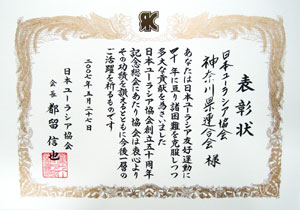 表彰状
日本ユーラシア協会
神奈川県連合会 様
あなたは日本ユーラシア友好運動に
年に亘り諸困難を克服しつつ
多大な貢献を為さいました
日本ユーラシア協会創立五十周年
記念総会にあたり協会は衷心より
その功績を讃えるとともに今後一層の
ご活躍を祈るものです
二〇〇七年 月二十七日
日本ユーラシア協会
会長 都留信也